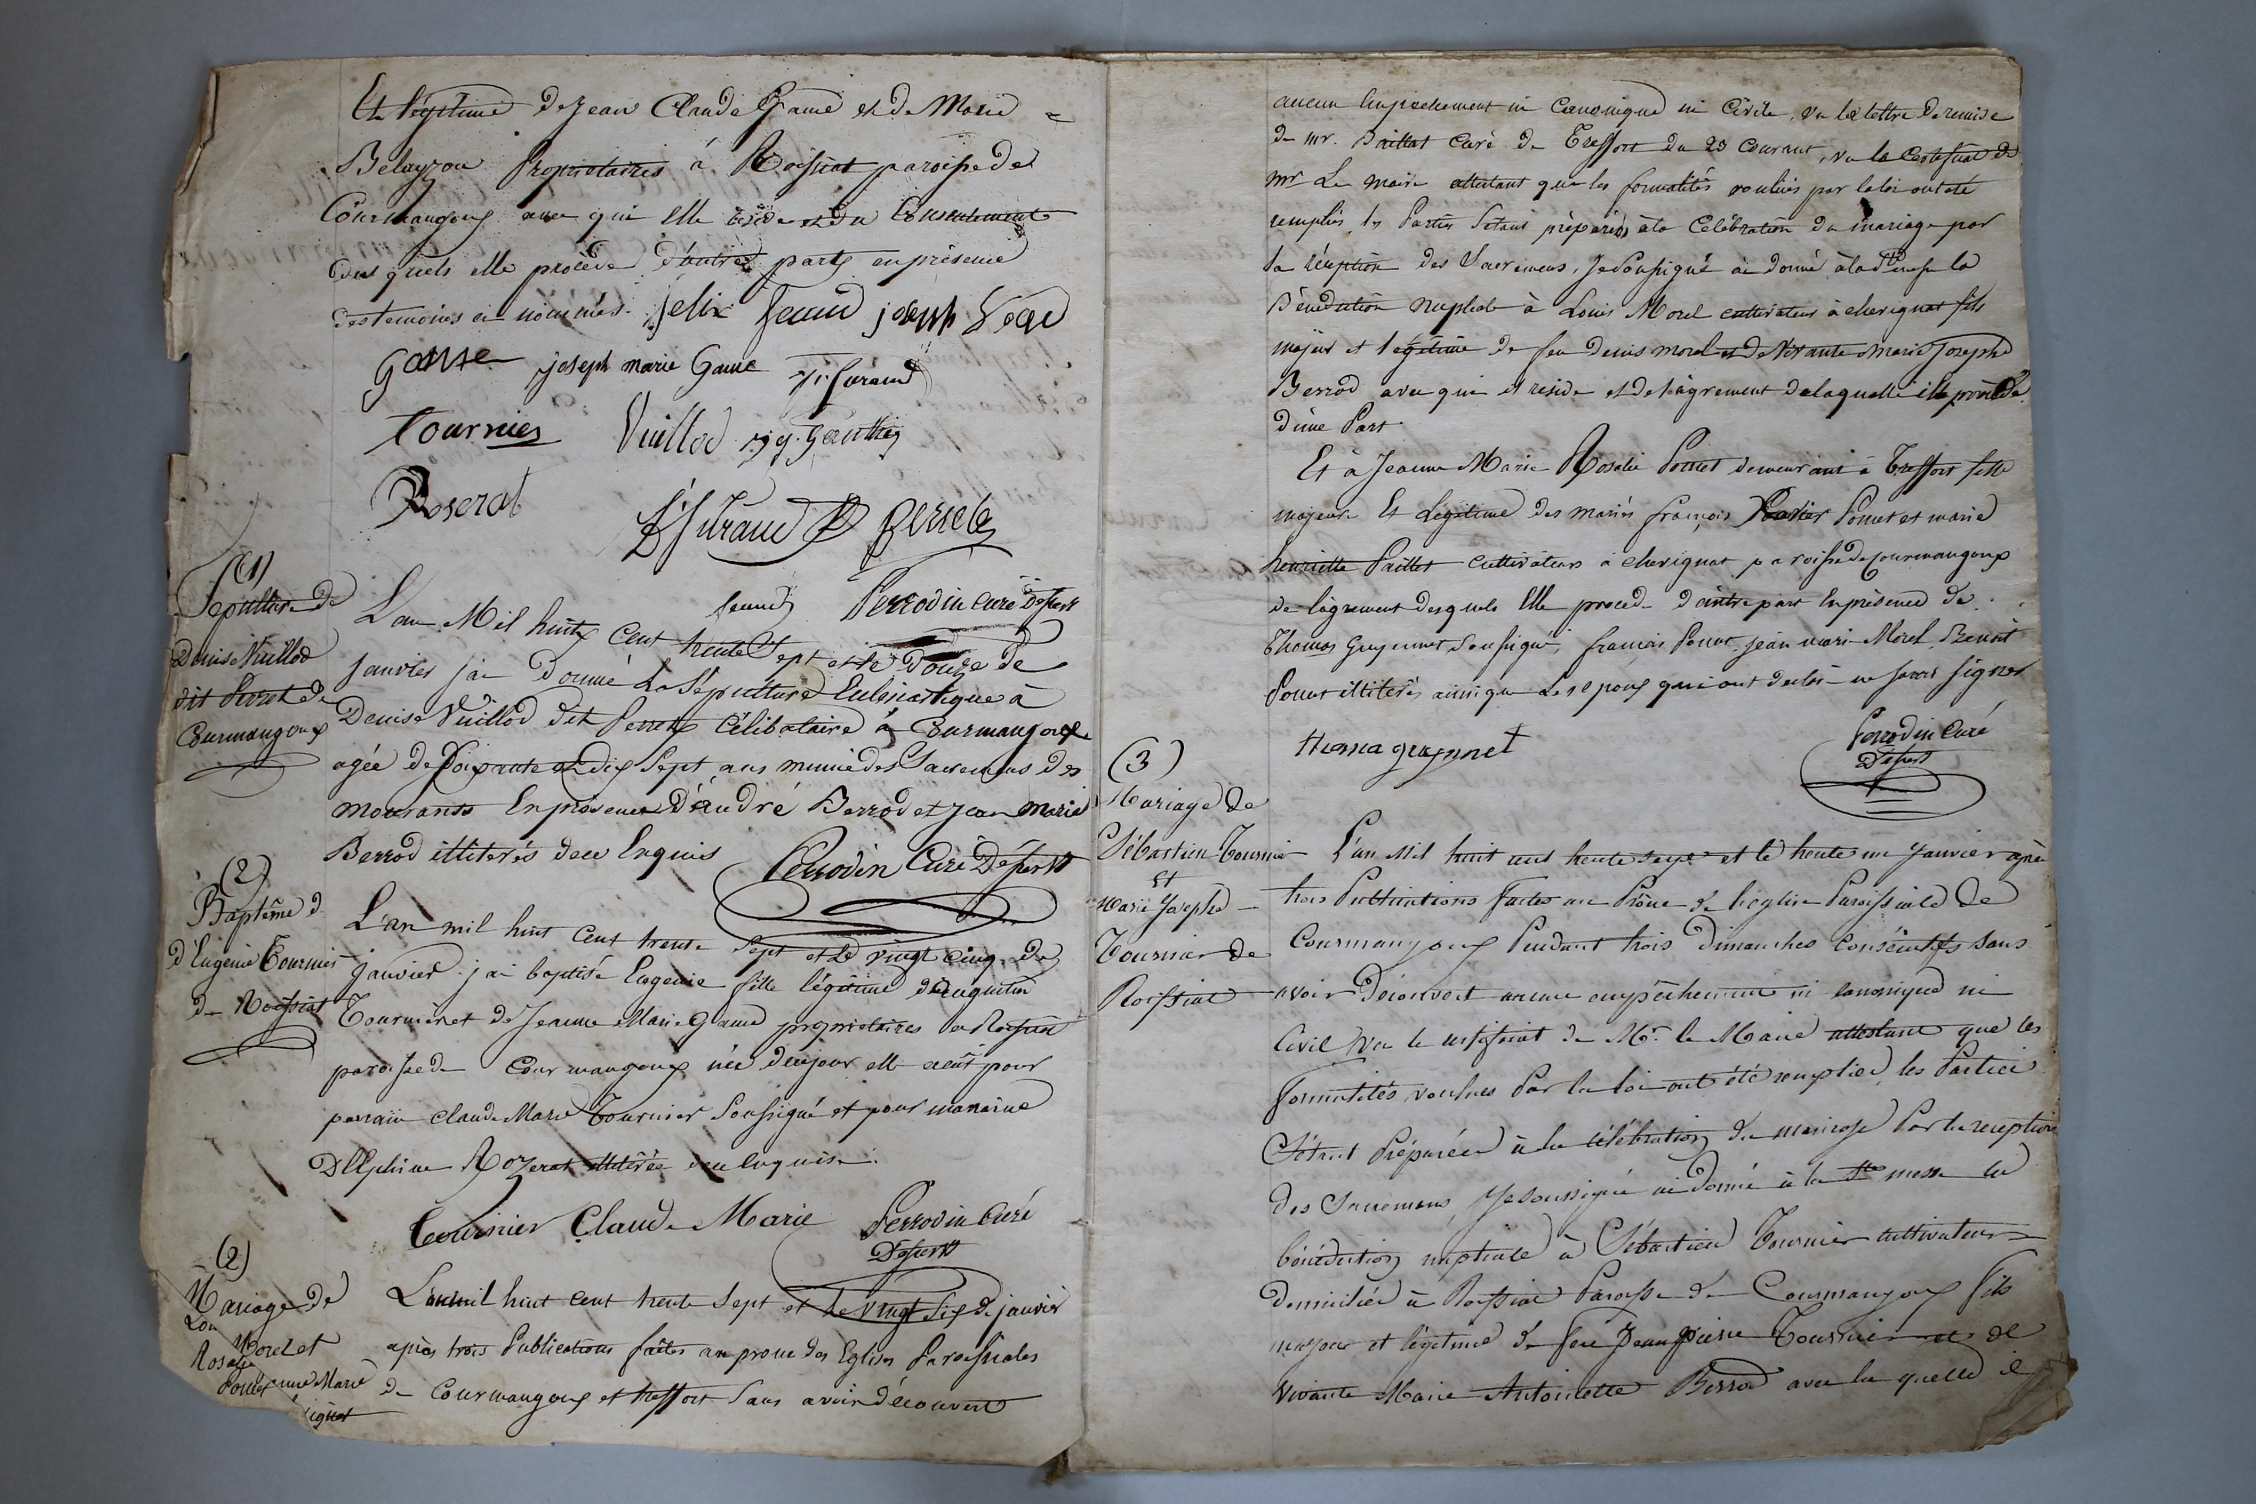 Et légitime de Jean Claude Game et de Marie
Belayzon Propriotaires á Roissiat paroisse de
Courmangoux avec qui elle réside et du Consentement
des quels elle procède d'autre part en présence
des temoins ci nommés. felix feaud joseph
Game joseph marie Game
Tournier Vuillod Gauthier
Roserat
Perrodin Curé Dessert
(1)
Sepulture de
Denise Vuillod
dit Perret de
Curmangoux
L'an Mil huit cent trente Sept et le Douze de
janvier j'ai Donné La Sépulture Ecclésiastique á
Denise Vuillod dit Perret Célibataire à Curmangoux
agée de Soixante et dix Sept ans munie des Sacremens des
mourants En présence D'André Berrod et Jean Marie
Berrod illiterés de ce Enquis Perrodin Curé Dessert
(2)
Baptême d
d'Eugénie Tournier
de Roissiat
L'an mil huit cent trente Sept et Le vingt cinq de
janvier j'ai baptisé Eugenie fille légitime d'Augustin
Tournier et de Jeanne Marie Game propriétaires á Roissiat
paroisse de Courmangoux née du jour elle a eût pour
parrain Claude Marie Tournier Soussigné et pour marraine
Delphine Rozerat illitérée de ce Enquise.
Tournier Claude Marie Perrodin Curé
Dessert
(2)
Mariage de
Lou
Morel et
Rosalie
Pomet Marie
L'an mil huit cent trente Sept et Le vingt Six de janvier
après trois Publications faites au prone des Eglises Paroissiales
de Courmangoux et treffort Sans avoir découvert
aucun Empechement ni Canonique ni Civile, vu la lettre de remise
de mr. Paillat Curé de Treffort du 23 Courant, vu le Certificat de
mr Le maire attestant que les formalités voulues par la loi ont été
remplies, les Parties S'étant préparées à la Célébration du mariage par
la réception des Sacremens, Je Soussigné ai donné à la Ste messe la
Bénédiction Nuptiale à Louis Morel cultivateur à cherignat fils
majeur et légitime de feu Denis morel et de Vivante Marie Josephe
Berrod avec qui il réside et de l'agrement de laquelle il procède
d'une Part
Et à Jeanne Marie Rosalie Pomet demeurant à Treffort fille
majeure Et Légitime des mariés françois Pomet et marie
henriette Paillet cultivateurs à cherignat paroisse de Courmangoux
de l'agrement desquels Elle procede d'autre part En présence de
Thomas Guyennet Soussigné, françois Pomet, jean marie Morel, Benoit
Pomet illiterés ainsi que Les époux qui ont declaré ne savoir signer
Perrodin Curé
Dessert
(3)
Mariage de
Sébastien Tournier
Et
Marie Josephe
Tournier de
Roissiat
L'an Mil huit cent trente sept et le trente un Janvier après
trois Publications faites au Prône de l'église Paroissiale de
Courmangoux Pendant trois Dimanches consécutifs sans
avoir découvert aucun empêchement ni canonique ni
Civil vu le certificat de Mr. le Maire attestant que les
formalités voulues Par la loi ont été remplies, les Parties
S'étant Préparées à la célébration du mariage Par la réception
des Sacremens Je soussigné ai donné à la Ste messe la
bénédiction nuptiale à Sébastien Tournier cultivateur
domicilié à Roissiat Paroisse de Courmangoux fils
majeur et légitime de feu Jean Pierre Tournier et de
vivante Marie Antoinette Berrod avec la quelle il